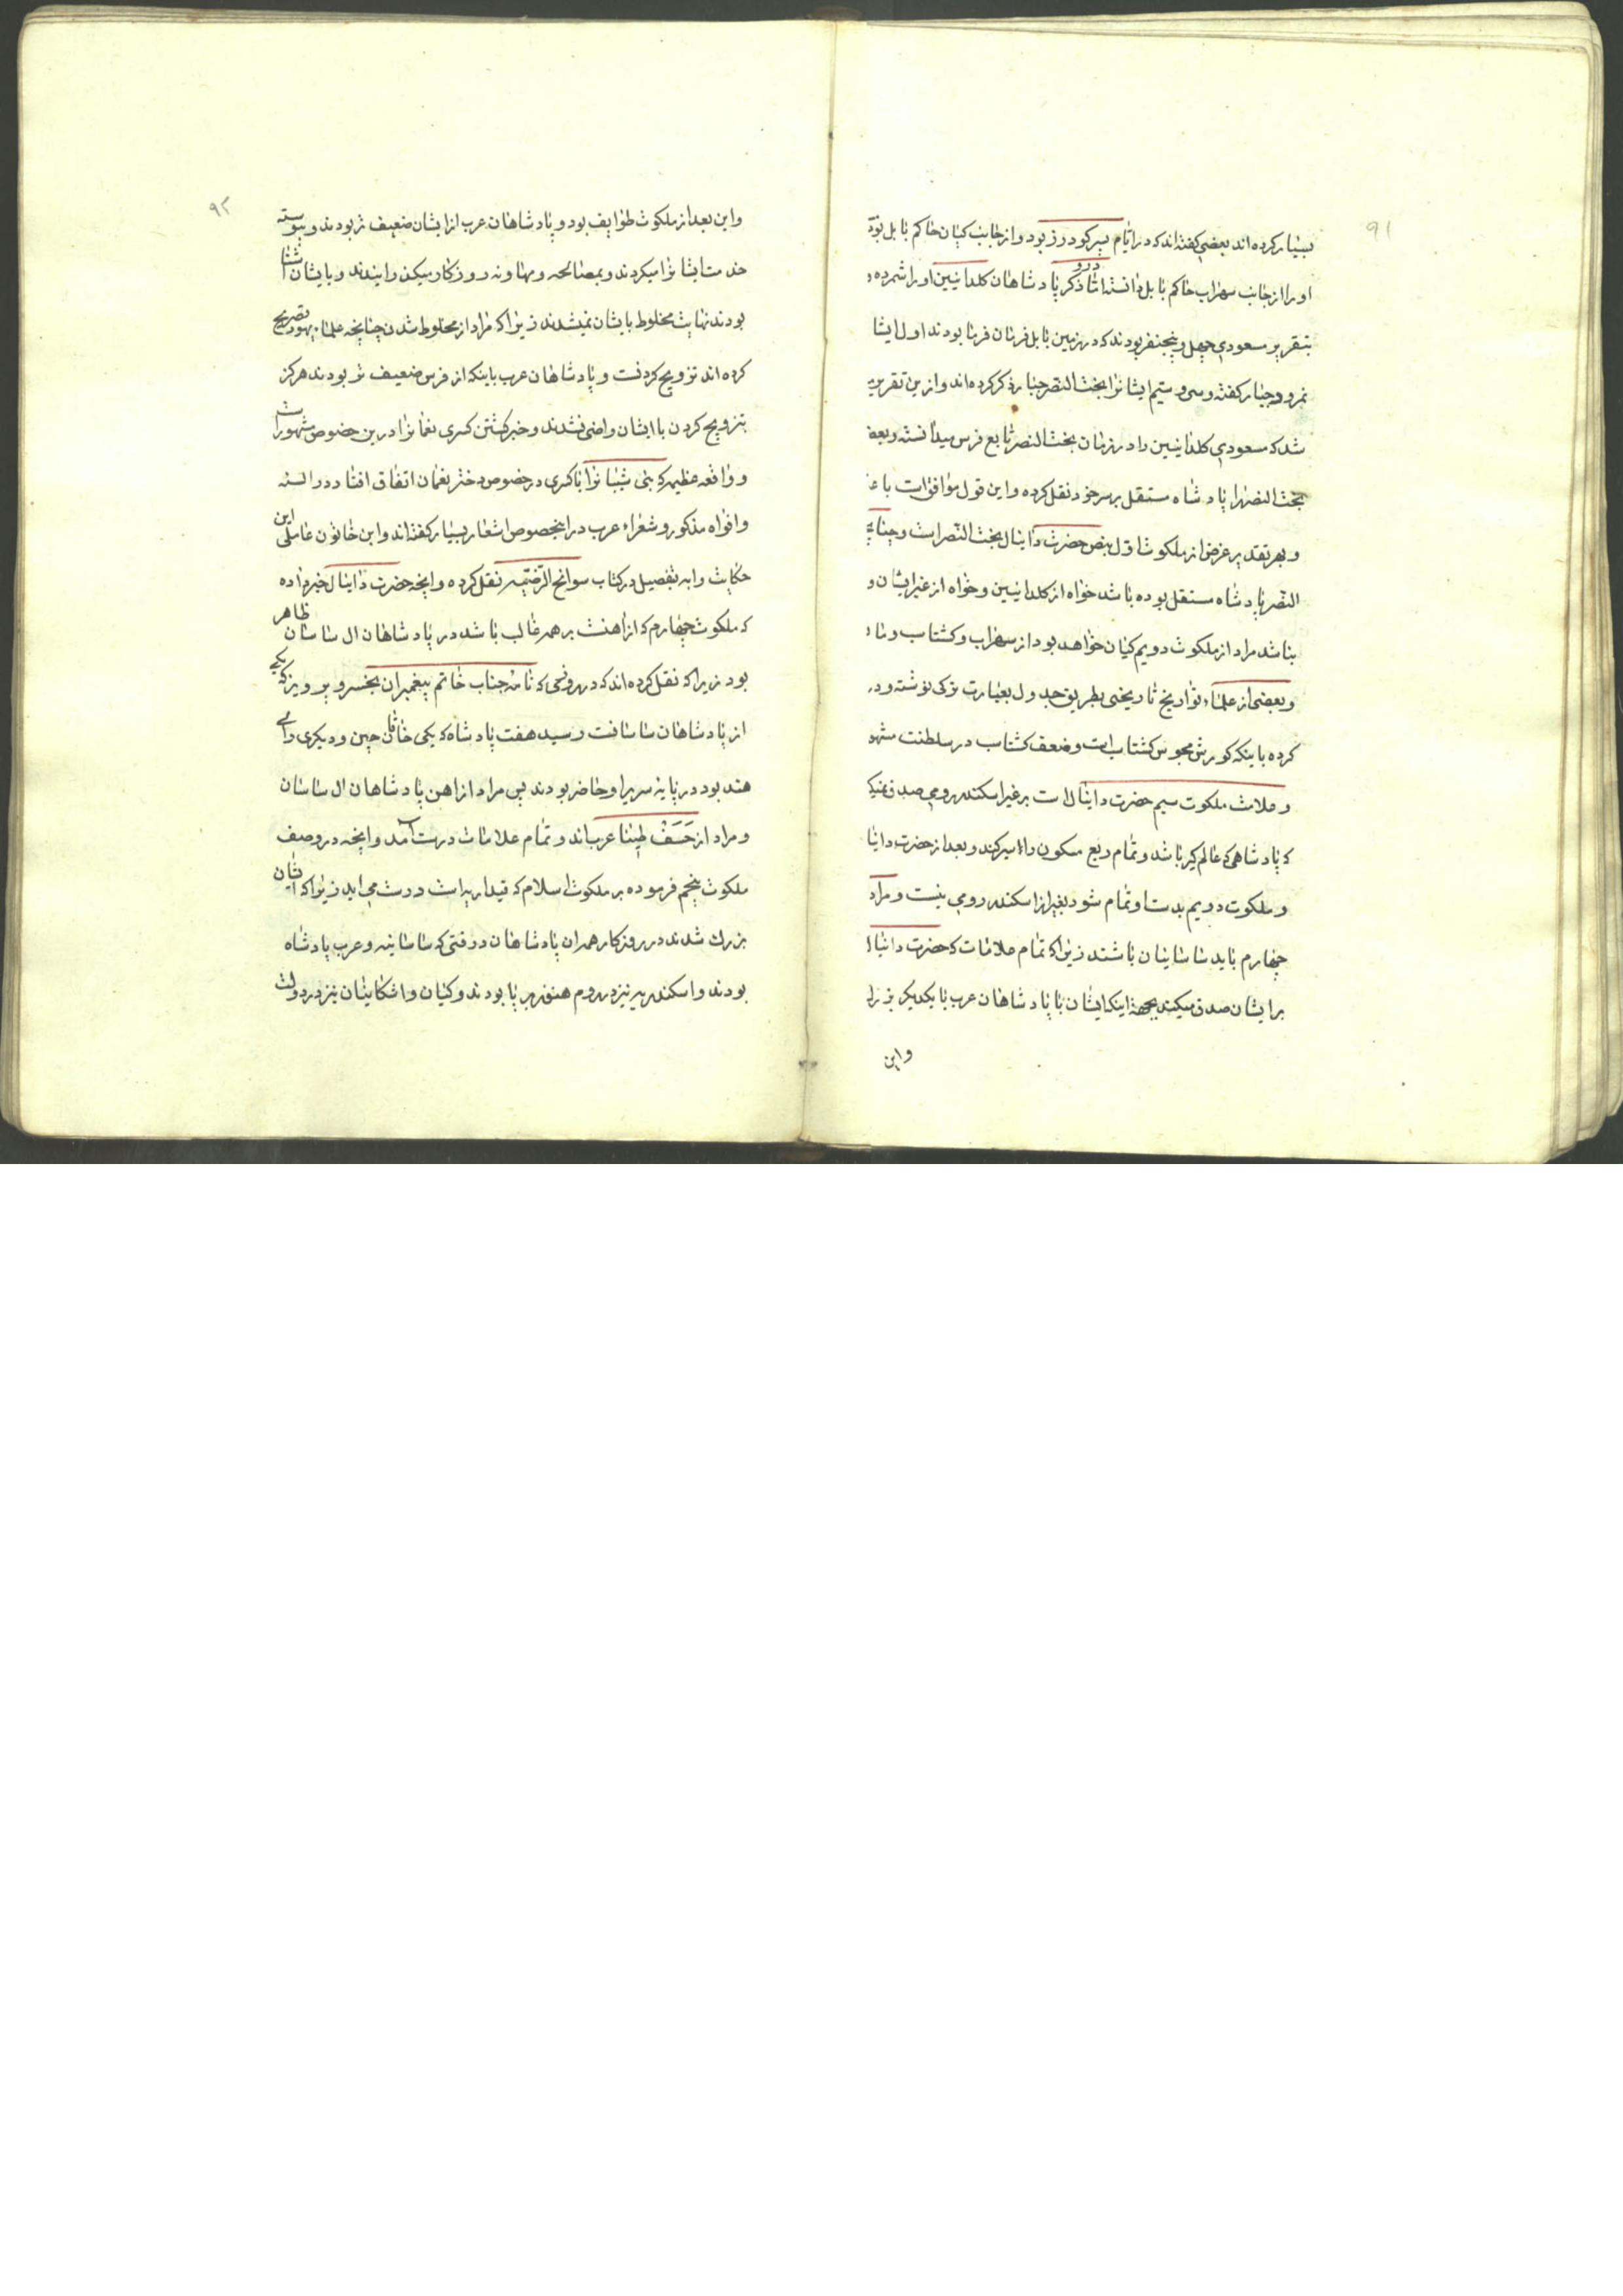 ۹۱
بسیار کرده اند بعضی گفته اند که در ایام پسر کودرز بود و از جانب کیان حاکم بابل بود
او را از جانب سهراب حاکم بابل دانسته اما در و ذکر پادشاهان کلدانیین او را شمرده و
بتقریر سعودی چهل و پنجنفر بودند که در زمین بابل فرمان فرما بودند اول ایشا
نمرود جبار گفته و سی و سیم ایشانرا بخت النصر جبار ذکر کرده اند و ازین تقریر
شد که مسعودی کلدانیین را در زمان بخت النصر تابع فرس میدانسته و بعض
بخت النصر را پادشاه مستقل بر سر خود نقل کرده و این قول موافق است با
و بهر تقدیر غرض از ملکوت اول بنص حضرت دانیال بخت النصر است و چنا
النصر پادشاه مستقل بوده باشد خواه از کلدانیین و خواه از غیر ایشان و
بناشد مراد از ملکوت دویم کیان خواهد بود از سهراب و کشتاسب و
و بعضی از علماء تواریخ تاریخی بطریق جدول بعبارت ترکی نوشته و در
کرده باینکه کورش مجوس کشتاسب است و ضعف کشتاسب در سلطنت مشهو
و علامت ملکوت سیم حضرت دانیال است بر غیر اسکندر رومی صدق نمیک
که پادشاهی که عالم کیر باشد و تمام ربع مسکون را اسیر کند و بعد از حضرت دانیا
و ملکوت دویم بدست او تمام شود بغیر از اسکندر رومی نیست و مراد
چهارم باید ساسانیان باشند زیرا که تمام علامات که حضرت دانیال
بر ایشان صدق میکند بجهة اینکه ایشان با پادشاهان عرب با یکدیکر
و این
۹۲
و این بعد از ملکوت طوایف بود و پادشاهان عرب از ایشان ضعیف تر بودند و پیوسته
خدمت ایشانرا میکردند و بمصالحه و مهاونه روزکار میکذرانیدند و با ایشان آشنا
بودند نهایت مخلوط بایشان نمیشدند زیرا که مراد از مخلوط شدن چنانچه علماء یهود تصریح
کرده اند تزویج کردنست و پادشاهان عرب باینکه از فرس ضعیف تر بودند هرکز
بتزویج کردن با ایشان راضی نشدند و خبر کشتن کسری نعمانرا درین خصوص مشهور است
و واقعه عظیمه که بنی شیبانرا با کسری در خصوص دختر نعمان اتفاق افتاد در السنه
و افواه مذکور و شعراء عرب در اینخصوص اشعار بسیار گفته اند و ابن خاتون عاملی این
حکایت را به تفصیل در کتاب سوانح نقل کرده و اینچه حضرت دانیال خبر داده
که ملکوت چهارم که از آهنست بر همه غالب باشد در پادشاهان ال ساسان ظاهر
بود زیرا که نقل کرده اند که در وقتی که نامه جناب خاتم پیغمبران بخسرو پرویز که یکی
از پادشاهان ساسانست رسید هفت پادشاه که یکی خاقان چین و دیکری رای
هند بود در پایه سریر او حاضر بودند پس مراد از اهن پادشاهان ال ساسان
و مراد از حَسَفْ طینا عرب اند و تمام علامات درست آمد و اینچه در وصف
ملکوت پنجم فرموده بر ملکوت اسلام که قیداریه است درست می اید زیرا که ایشان
بزرك شدند در روزکار همه ان پادشاهان در وقتی که ساسانیه و عرب پادشاه
بودند و اسکندریه نیز در روم هنوز بر پا بودند و کیان و اشکانیان نیز در دولت